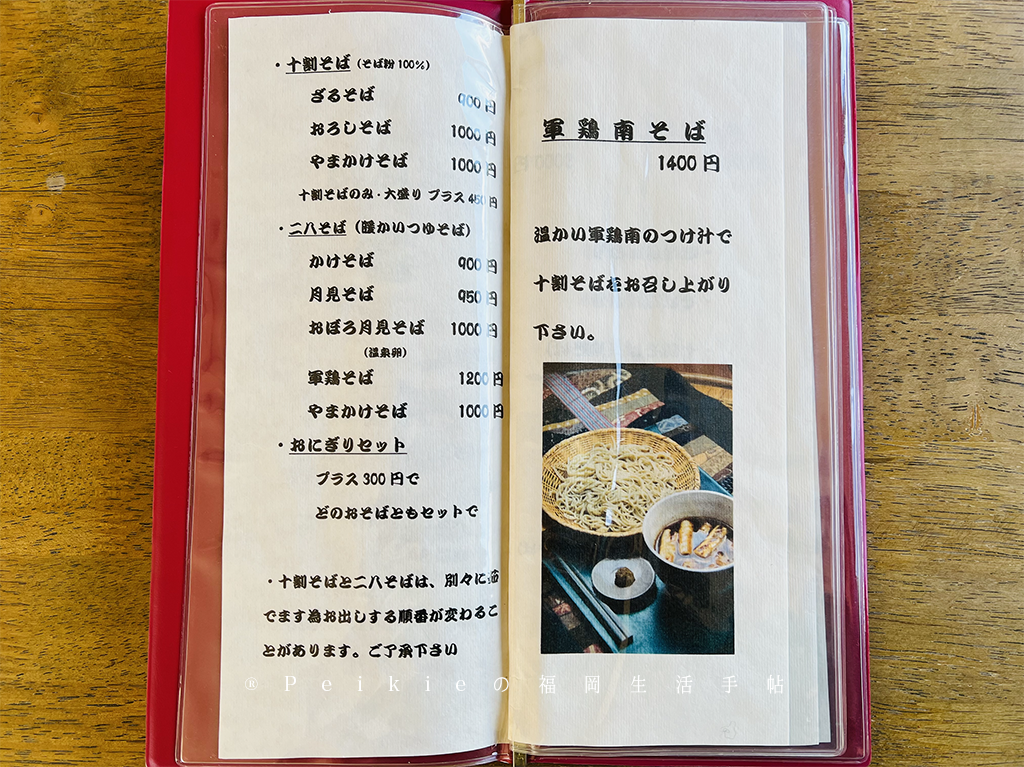 ・十割そば（そば粉100％）
ざるそば 900円
おろしそば 1000円
やまかけそば 1000円
十割そばのみ・大盛り プラス450円
・二八そば（暖かいつゆそば）
かけそば 900円
月見そば 950円
おぼろ月見そば 1000円
（温泉卵）
軍鶏そば 1200円
やまかけそば 1000円
・おにぎりセット
プラス300円で
どのおそばともセットで
・十割そばと二八そばは、別々に茹
でます為お出しする順番が変わるこ
とがあります。ご了承下さい
軍鶏南そば
1400円
温かい軍鶏南のつけ汁で
十割そばをお召し上がり
下さい。
®Peikieの福岡生活手帖